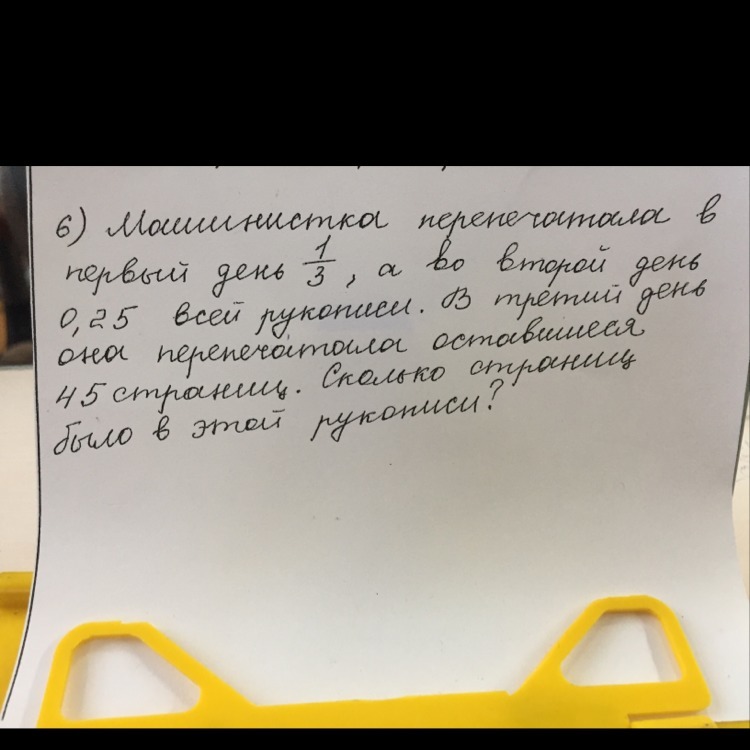 6) Машинистка перепечатала в
первый день 1/3, а во второй день
0,25 всей рукописи. В третий день
она перепечатала оставшиеся
45 страниц. Сколько страниц
было в этой рукописи?